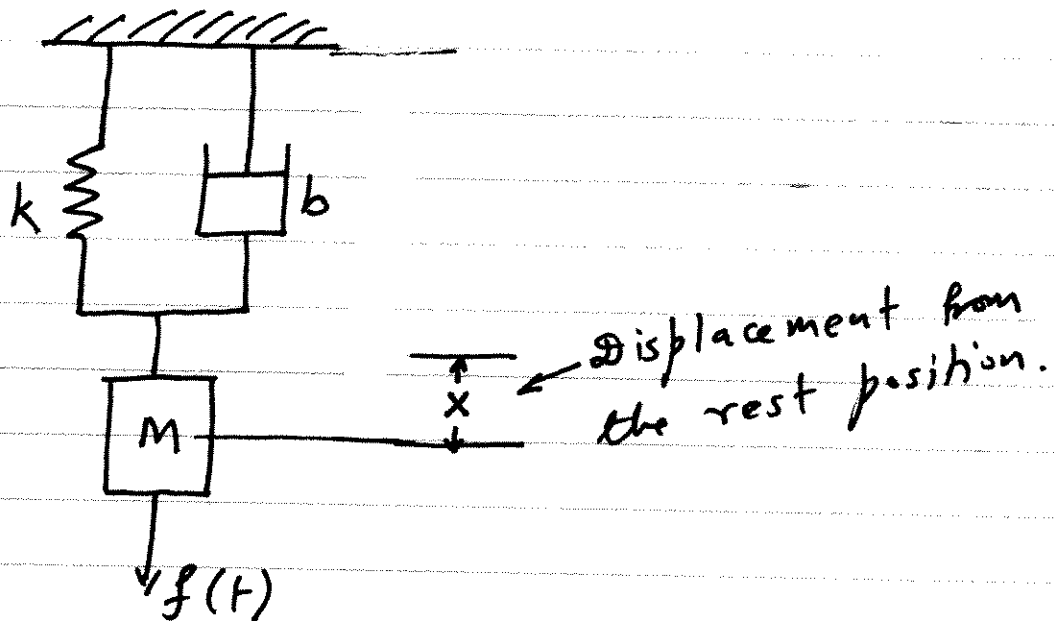 k
b
Displacement from
the rest position.
x
M
f(t)